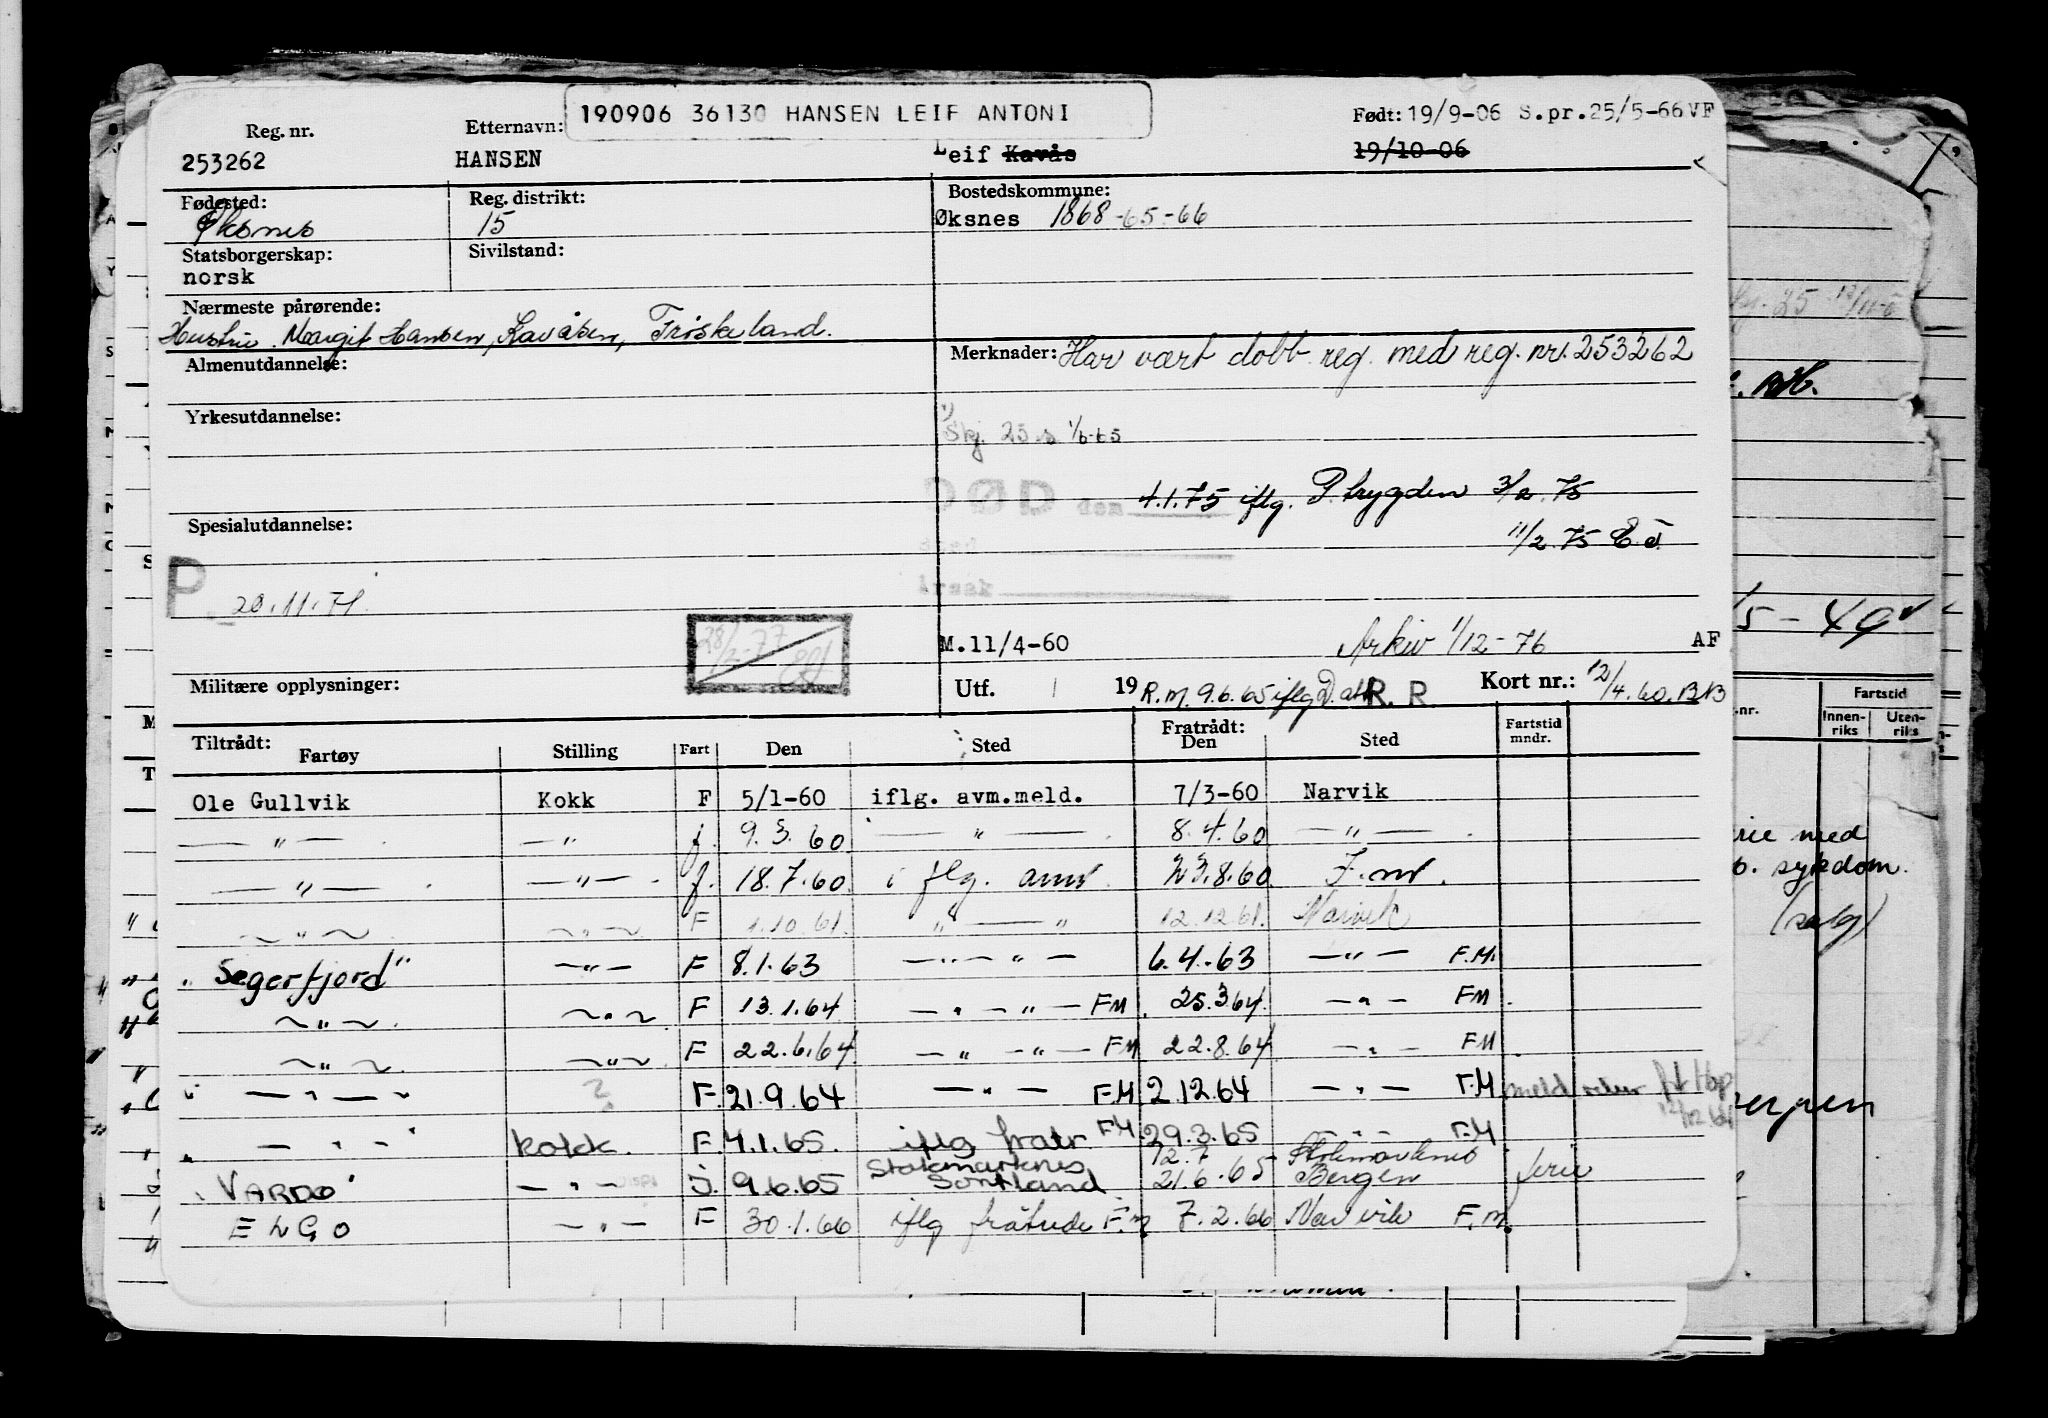 190906 36130 HANSEN LEIF ANTONI
Født: 19/9-06 S.pr.25/5-66 VF
Reg. nr. Etternavn:
253262 HANSEN Leif Kavås 19/10-06
Fødested: Reg. distrikt: Bostedskommune:
Øksnes 15 Øksnes 1868-65-66
Statsborgerskap: Sivilstand:
norsk
Nærmeste pårørende:
Hustru Margit Hansen, Kavåsen, Friskeland.
Almenutdannelse: Merknader: Har vært dobb. reg. med reg. nr. 253262
Yrkesutdannelse:
Skj. 25 s 1/6-65
DØD den 4.1.75 iflg. P.trygden 3/2.75
Sted 11/2.75 E.Ø.
Spesialutdannelse:
Årsak
P. 20.11.71
28/2-77
M.11/4-60 Arkiv 1/12-76 AF
Militære opplysninger: Utf. 19 R.M. 9.6.65 iflg D. att R. R Kort nr.: 12/4.60.BNB
Tiltrådt: Fratrådt:
Fartøy Stilling Fart Den Sted Den Sted Fartstid mndr.
Ole Gullvik Kokk F 5/1-60 iflg. avm.meld. 7/3-60 Narvik
— " — — " f. 9.3.60 — " — 8.4.60 — " —
— " — — " — f. 18.7.60 iflg. anm. 23.8.60 F.m.
— " — — " — F 1.10.61. " — " 12.12.61. Narvik
"Segerfjord" — " — F 8.1.63 — " — " — 6.4.63 — " — F.M.
— " — — " — F 13.1.64 — " — " — FM 25.3.64. — " — FM
— " — — " — F 22.6.64 — " — " — FM 22.8.64 — " — FM
" — " — " ? F. 21.9.64 — " — F.M 2.12.64 — " — F.M meld
" — " — " Kokk. F. 4.1.65. iflg fratr F.M. 29.3.65 — " — F.M
"VARDØ" — " — J. 9.6.65 Stokmarknes Sortland 12.7 21.6.65 Stokmarknes Bergen ferie
ENGO — " — F 30.1.66 iflg fråtrede F.m 7.2.66 Narvik F.m.
Fartstid
Innen-riks Uten-riks
5-49
med
sykdom.